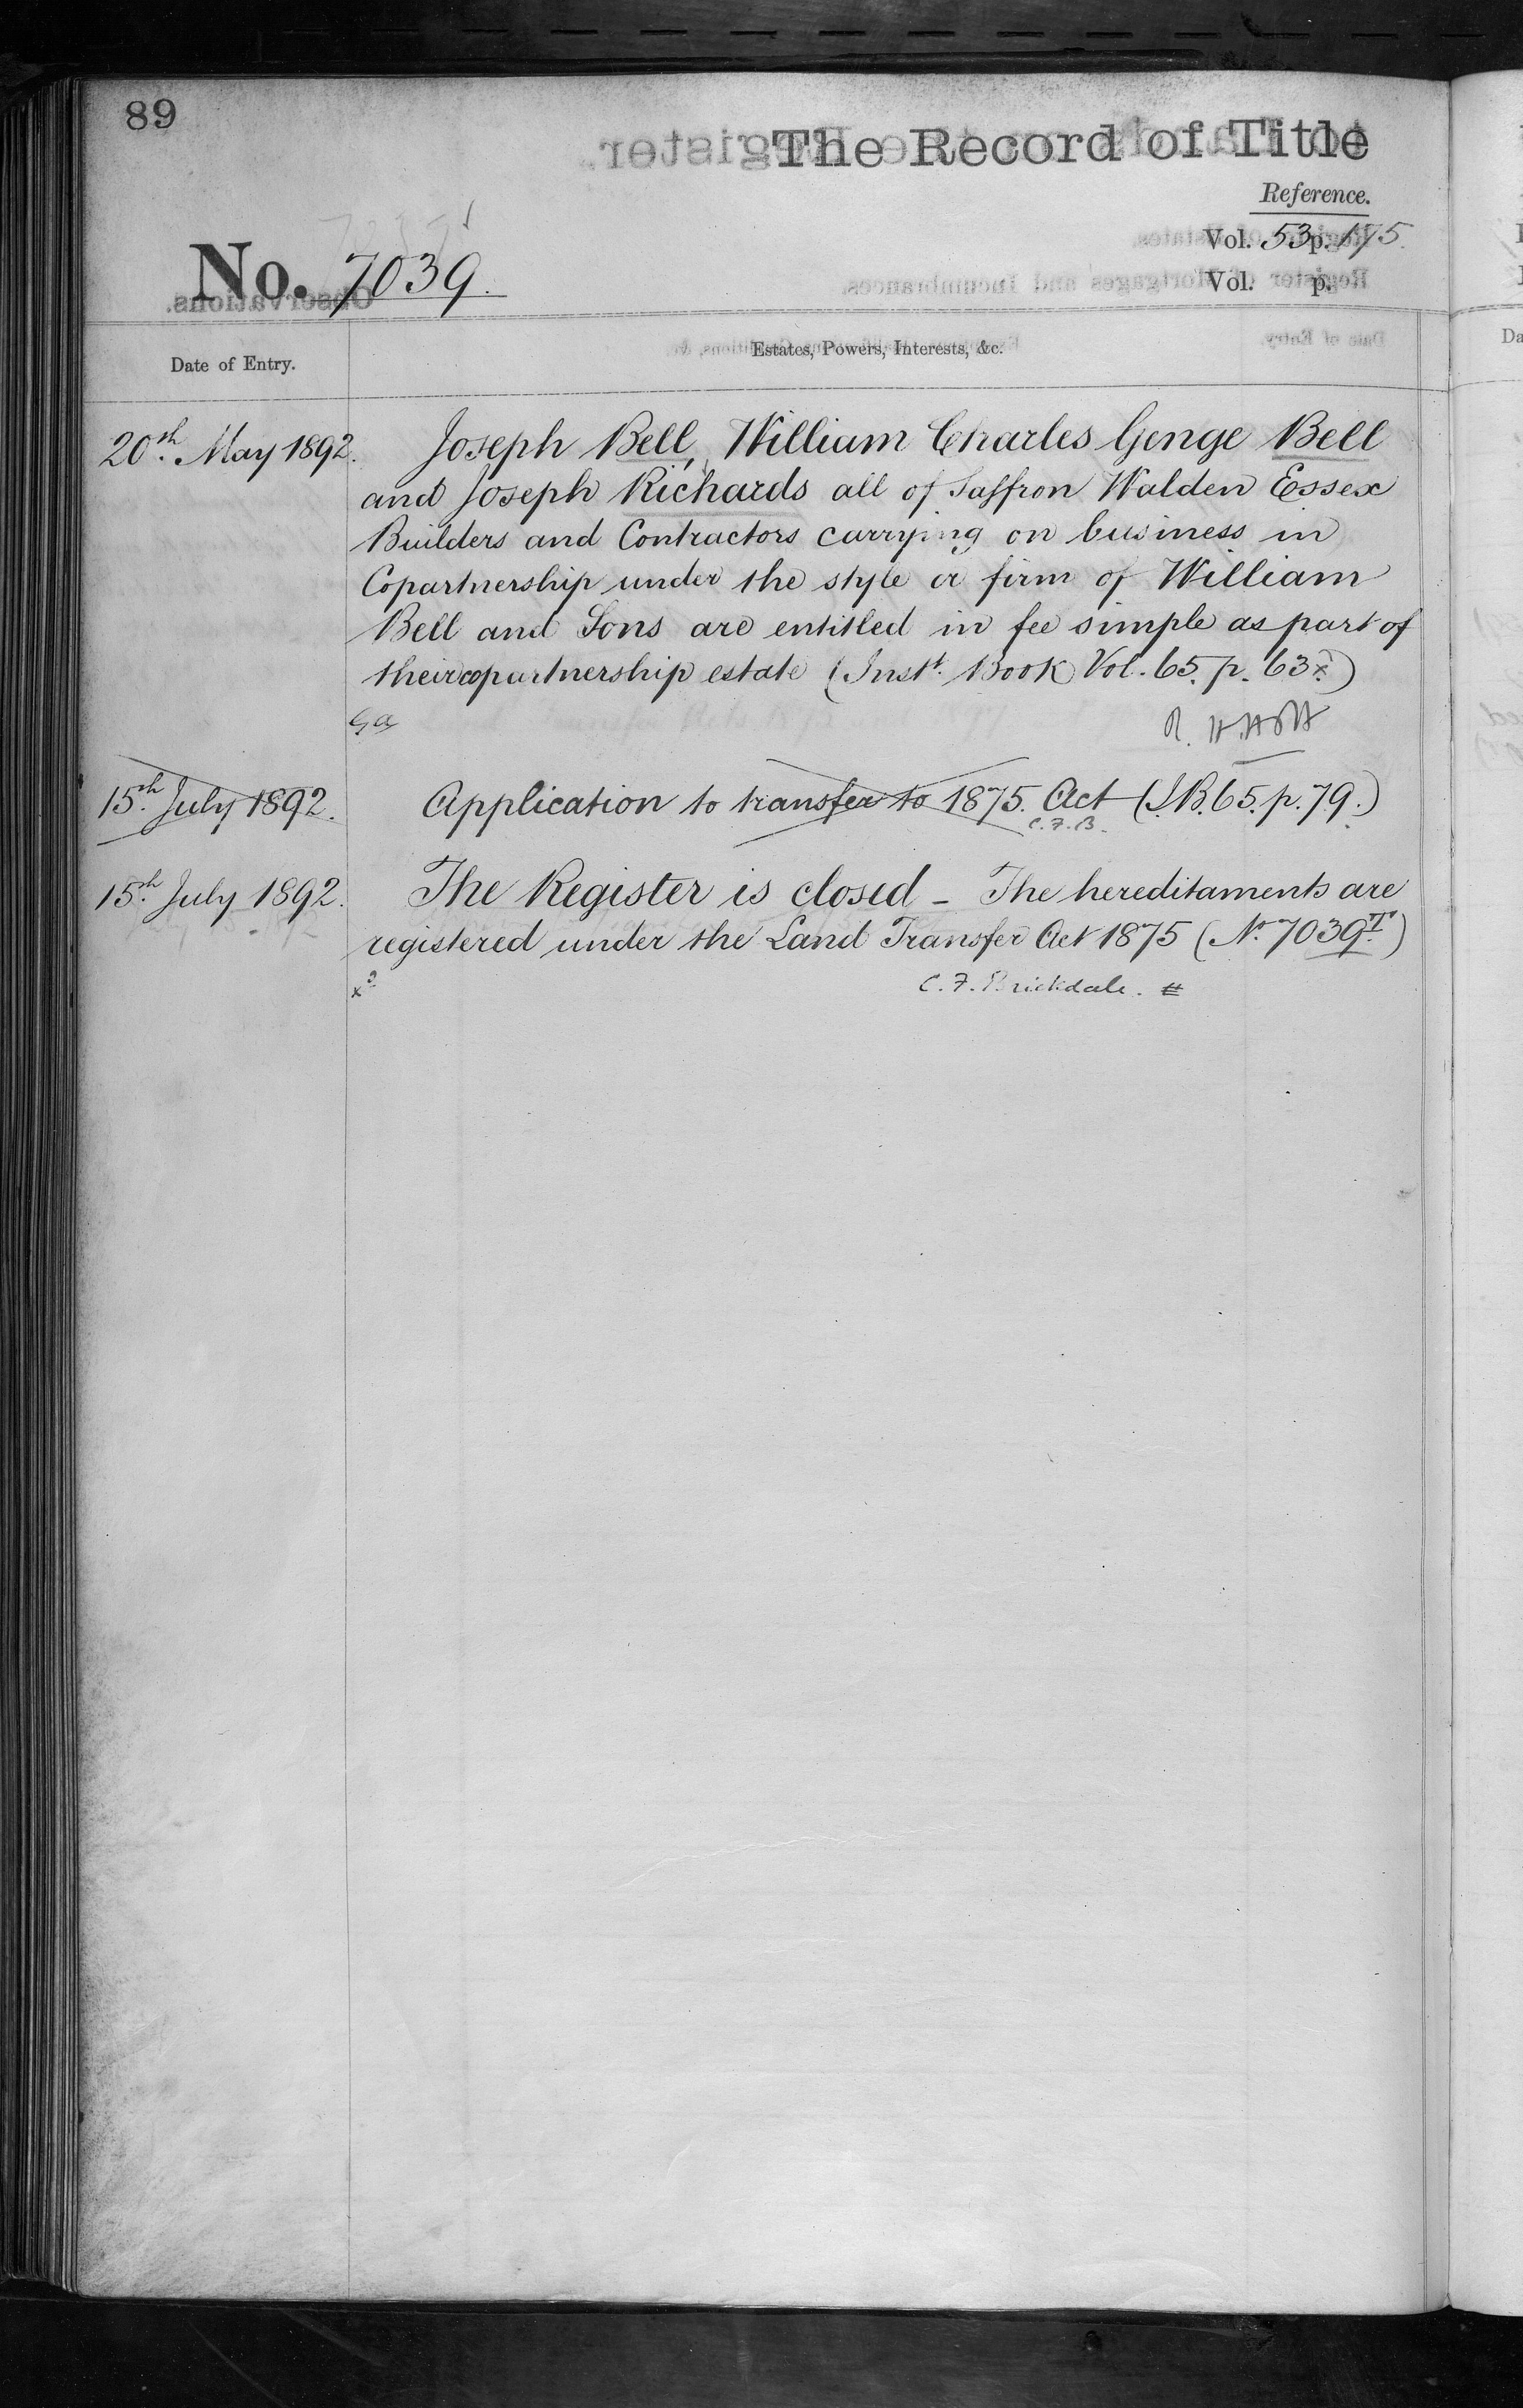 89
The Record of Title
Reference.
Vol. 53 p. 175.
No. 7039.
Vol. p.
Date of Entry.
Estates, Powers, Interests, &c.
20th May 1892.
Joseph Bell, William Charles Genge Bell
and Joseph Richards all of Saffron Walden Essex
Builders and Contractors carrying on business in
Copartnership under the style or firm of William
Bell and Sons are entitled in fee simple as part of
their copartnership estate (Inst. Book Vol. 65. p. 63x)
15th July 1892.
Application to transfer to 1875. Act (I.B. 65. p. 79.)
C.F.B.
15th July 1892.
The Register is closed - The hereditaments are
registered under the Land Transfer Act 1875 (No. 7039T.)
C. F. Brickdale.